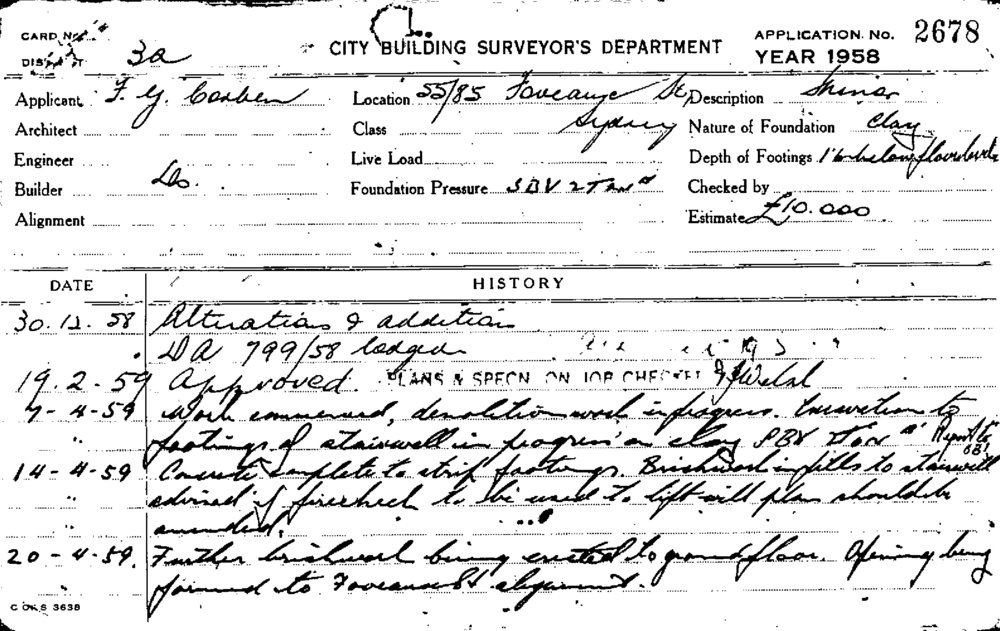 CARD No.
DISTRICT 3a
CITY BUILDING SURVEYOR'S DEPARTMENT
APPLICATION No. 2678
YEAR 1958
Applicant F. G. Corben
Location 55/85 Foveaux St, Sydney
Description Minor
Architect
Class
Nature of Foundation Clay
Engineer
Live Load
Depth of Footings 1' below floor levels
Builder Do.
Foundation Pressure SBV 2 Ton
Checked by
Alignment
Estimate £10.000
DATE HISTORY
30.12.58 Alterations & additions
DA 799/58 lodged
19.2.59 Approved. PLANS & SPECN ON JOB CHECKED Welsh
7-4-59 Work commenced, demolition work in progress. Excavation to
footings of stairwell in progress on clay SBV Ton Report to
14-4-59 Concrete complete to strip footings. Brickwork infills to stairwell
advised if firecheck to be used to lift well plan should be
amended.
20-4-59. Further brickwork being erected to ground floor. Opening being
formed to Foveaux St alignment.
3638